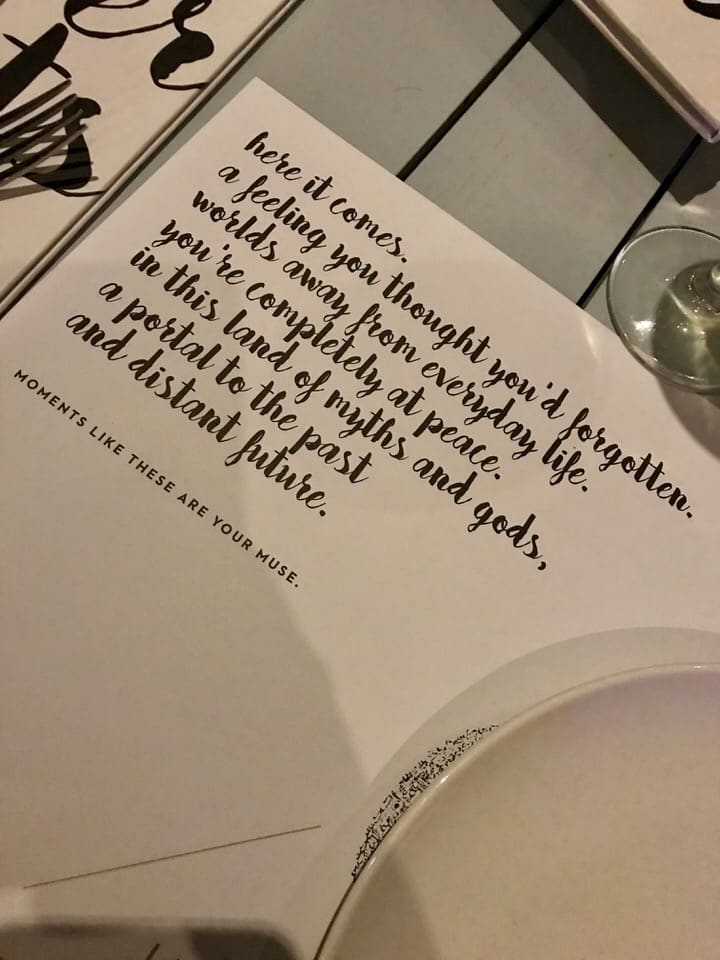 here it comes.
a feeling you thought you'd forgotten.
worlds away from everyday life.
you're completely at peace.
in this land of myths and gods,
a portal to the past
and distant future.
MOMENTS LIKE THESE ARE YOUR MUSE.